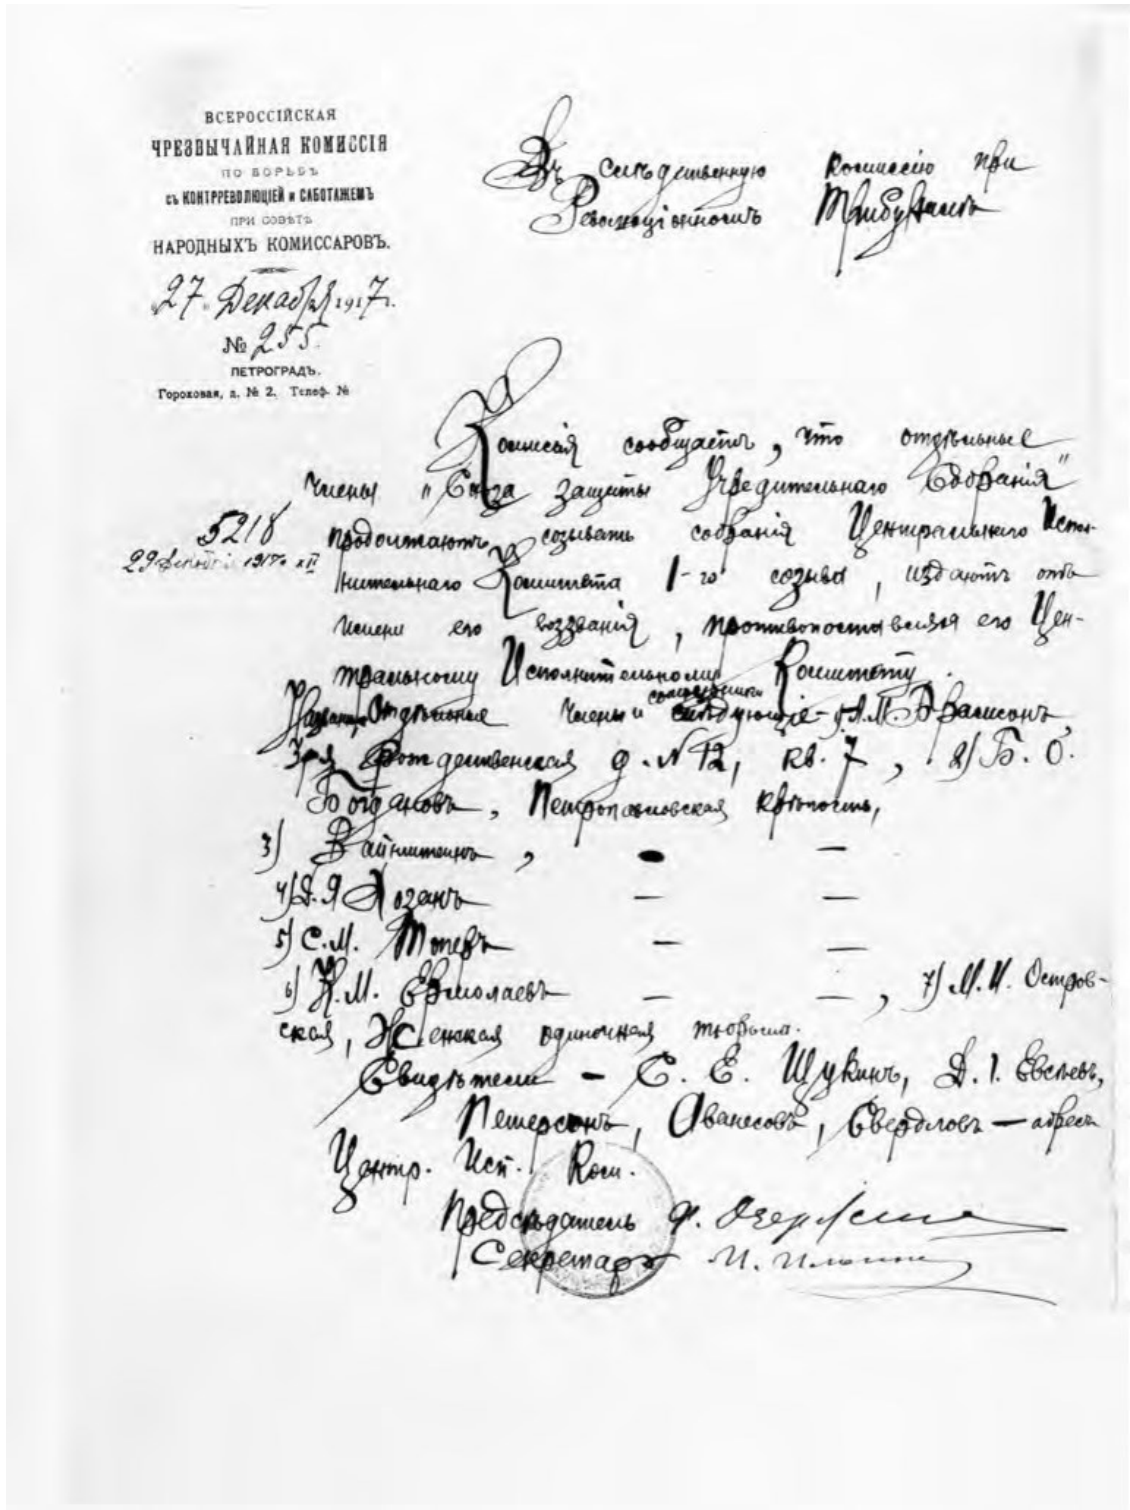 ВСЕРОССІЙСКАЯ
ЧРЕЗВЫЧАЙНАЯ КОМИССІЯ
ПО БОРЬБѢ
съ КОНТРРЕВОЛЮЦІЕЙ и САБОТАЖЕМЪ
ПРИ СОВѢТѢ
НАРОДНЫХЪ КОМИССАРОВЪ.
27 Декабря 1917 г.
№ 255.
ПЕТРОГРАДЪ.
Гороховая, д. № 2. Телеф. №
Въ слѣдственную комиссію при
Революціонномъ Трибуналѣ
Комиссія сообщаетъ, что отдѣльные
члены "Союза защиты Учредительнаго Собранія"
5218
29 декабря 1917 г. XII
продолжаютъ созывать собранія Центральнаго Испол-
нительнаго Комитета 1-го созыва, издаютъ отъ
имени его воззванія, противопоставляя его Цен-
тральному Исполнительному Комитету.
Отдѣльные члены слѣдующіе - 1) А.М. Брамсонъ,
3-я Рождественская д. N 12, кв. 7, 2) Б. О.
Богдановъ, Петропавловская крѣпость,
3) Вайнштейнъ, — —
4) Д. Я — —
5) С. М. — —
6) К. М. Ермолаевъ — —, 7) М. И. Остров-
ская, Женская одиночная тюрьма.
Свидѣтели - С. Е. Щукинъ, Д. І. Евсѣевъ,
Петерсонъ, Аванесовъ, Свердловъ — адресъ
Центр. Исп. Ком.
Предсѣдатель Ф. Дзержинскій
Секретарь И. Ильинъ